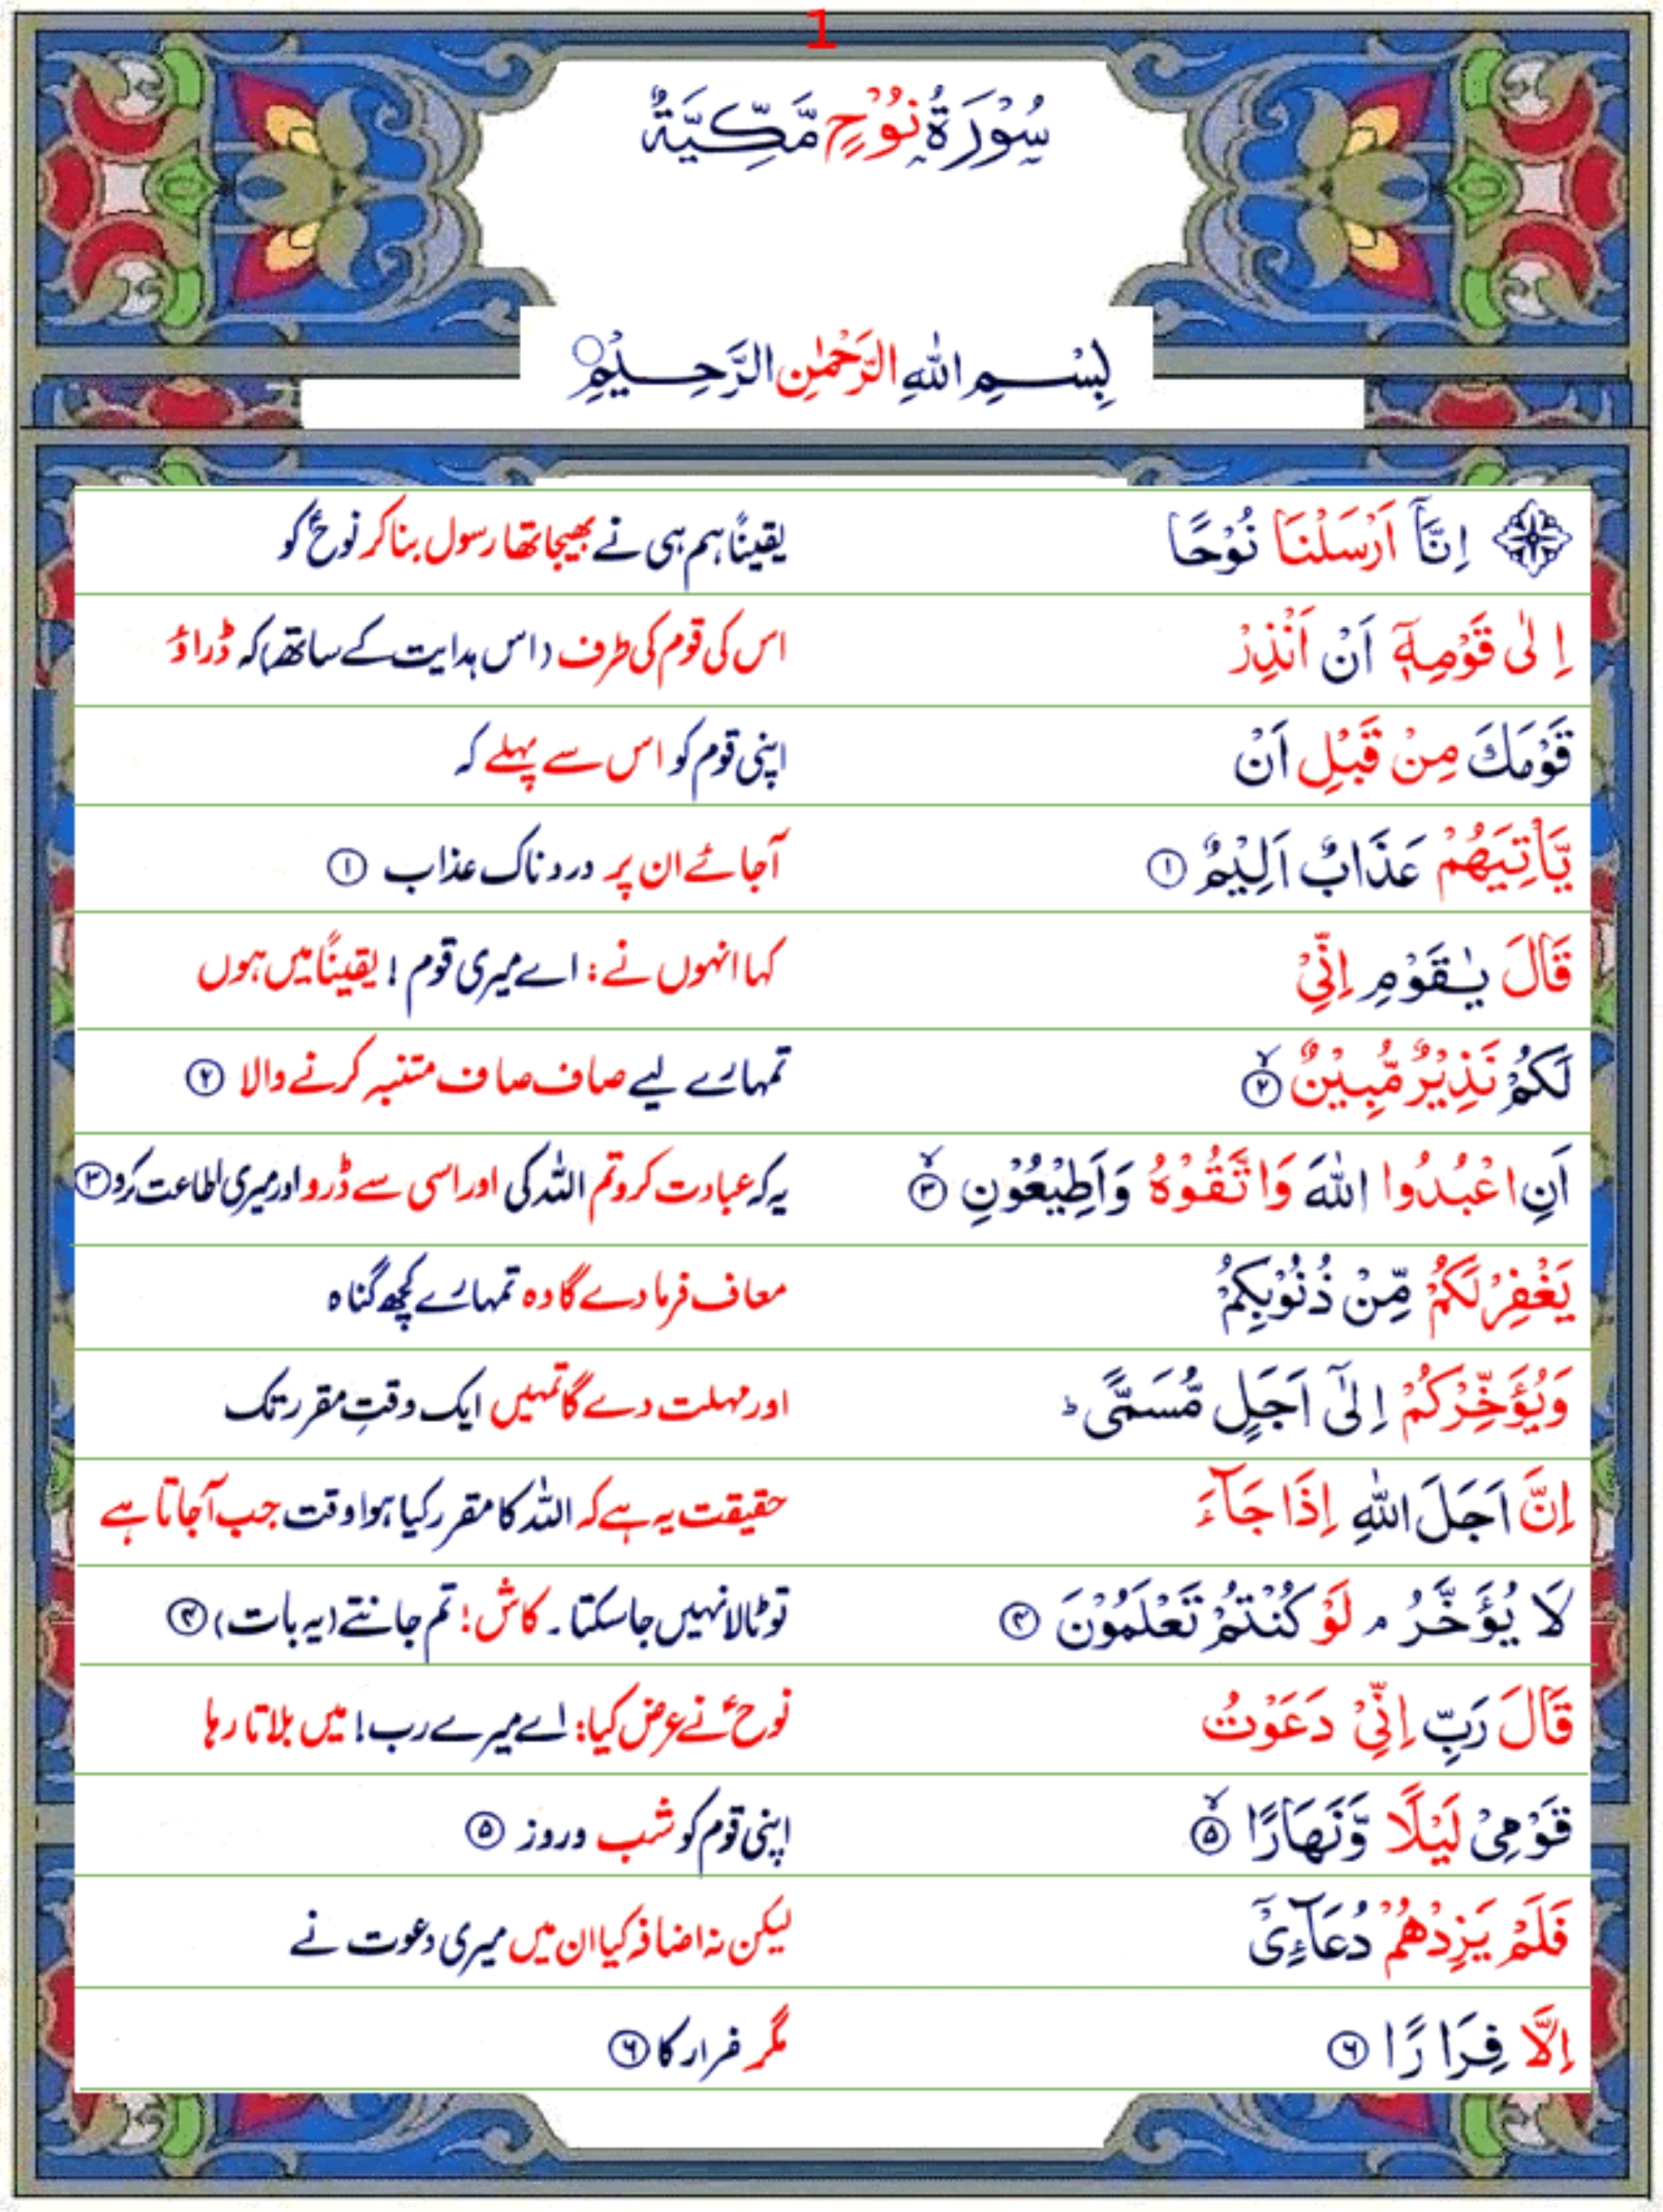 1
سُوْرَةُ نُوْحٍ مَّكِّيَّةٌ
بِسْمِ اللّٰهِ الرَّحْمٰنِ الرَّحِيْمِ
اِنَّاۤ اَرْسَلْنَا نُوْحًا یقینًا ہم ہی نے بھیجا تھا رسول بنا کر نوحؑ کو
اِلٰى قَوْمِهٖۤ اَنْ اَنْذِرْ اس کی قوم کی طرف (اس ہدایت کے ساتھ) کہ ڈراؤ
قَوْمَكَ مِنْ قَبْلِ اَنْ اپنی قوم کو اس سے پہلے کہ
يَّاْتِيَهُمْ عَذَابٌ اَلِيْمٌ ۝۱ آجائے ان پر دردناک عذاب ۝۱
قَالَ يٰقَوْمِ اِنِّىْ کہا انہوں نے: اے میری قوم! یقینًا میں ہوں
لَكُمْ نَذِيْرٌ مُّبِيْنٌ ۙ۝۲ تمہارے لیے صاف صاف متنبہ کرنے والا ۝۲
اَنِ اعْبُدُوا اللّٰهَ وَاتَّقُوْهُ وَاَطِيْعُوْنِ ۙ۝۳ یہ کہ عبادت کرو تم اللہ کی اور اسی سے ڈرو اور میری اطاعت کرو ۝۳
يَغْفِرْ لَكُمْ مِّنْ ذُنُوْبِكُمْ معاف فرما دے گا وہ تمہارے کچھ گناہ
وَيُؤَخِّرْكُمْ اِلٰٓى اَجَلٍ مُّسَمًّى ؕ اور مہلت دے گا تمہیں ایک وقتِ مقرر تک
اِنَّ اَجَلَ اللّٰهِ اِذَا جَآءَ حقیقت یہ ہے کہ اللہ کا مقرر کیا ہوا وقت جب آجاتا ہے
لَا يُؤَخَّرُ ۘ لَوْ كُنْتُمْ تَعْلَمُوْنَ ۝۴ تو ٹالا نہیں جاسکتا۔ کاش! تم جانتے (یہ بات) ۝۴
قَالَ رَبِّ اِنِّىْ دَعَوْتُ نوحؑ نے عرض کیا: اے میرے رب! میں بلاتا رہا
قَوْمِىْ لَيْلًا وَّنَهَارًا ۙ۝۵ اپنی قوم کو شب وروز ۝۵
فَلَمْ يَزِدْهُمْ دُعَآءِىْۤ لیکن نہ اضافہ کیا ان میں میری دعوت نے
اِلَّا فِرَارًا ۝۶ مگر فرار کا ۝۶